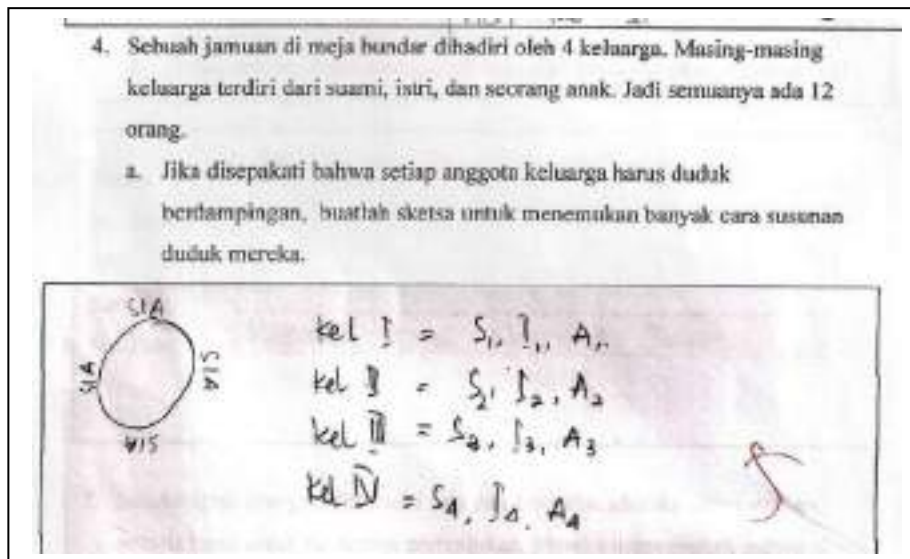 4. Sebuah jamuan di meja bundar dihadiri oleh 4 keluarga. Masing-masing
keluarga terdiri dari suami, istri, dan seorang anak. Jadi semuanya ada 12
orang.
a. Jika disepakati bahwa setiap anggota keluarga harus duduk
berdampingan, buatlah sketsa untuk menemukan banyak cara susunan
duduk mereka.
SIA
SIA
SIA
SIA
Kel I = S1, I1, A1.
Kel II = S2, I2, A2
Kel III = S3, I3, A3
Kel IV = S4, I4, A4